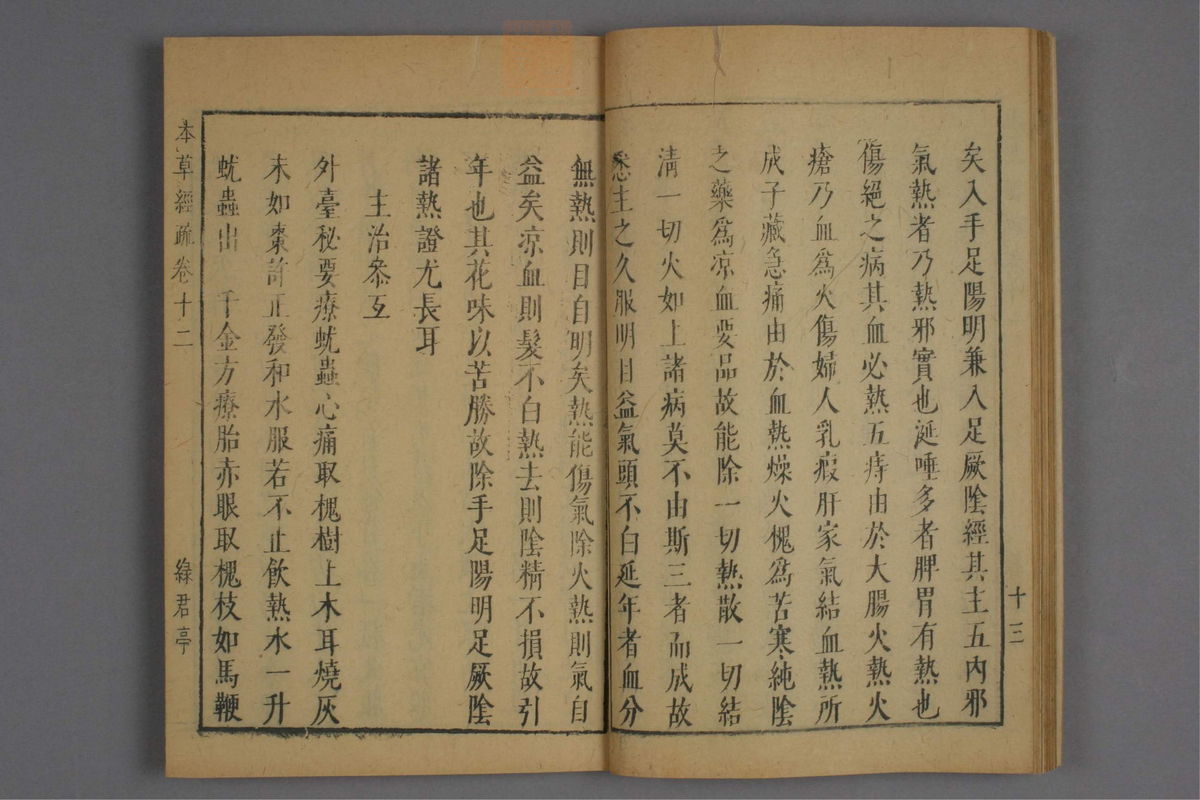 矣入手足陽明兼入足厥隂經其主五内邪
氣熱者乃熱邪實也涎唾多者脾胃有熱也
傷絕之病其血必熱五痔由於大腸火熱火
瘡乃血爲火傷婦人乳瘕肝家氣結血熱所
成子藏急痛由於血熱燥火槐爲苦寒純陰
之藥爲凉血要品故能除一切熱散一切結
清一切火如上諸病莫不由斯三者而成故
悉主之久服明目益氣頭不白延年者血分
十三
無熱則目自明矣熱能傷氣除火熱則氣自
益矣凉血則髮不白熱去則陰精不損故引
年也其花味以苦勝故除手足陽明足厥陰
諸熱證尤長耳
主治叅互
外臺秘要療蚘蟲心痛取槐樹上木耳燒灰
末如棗許正發和水服若不止飲熱水一升
蚘蟲出 千金方療胎赤眼取槐枝如馬鞭
本草經疏卷十二
綠君亭